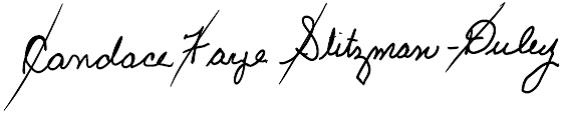 Candace Faye Slitzman-Duley